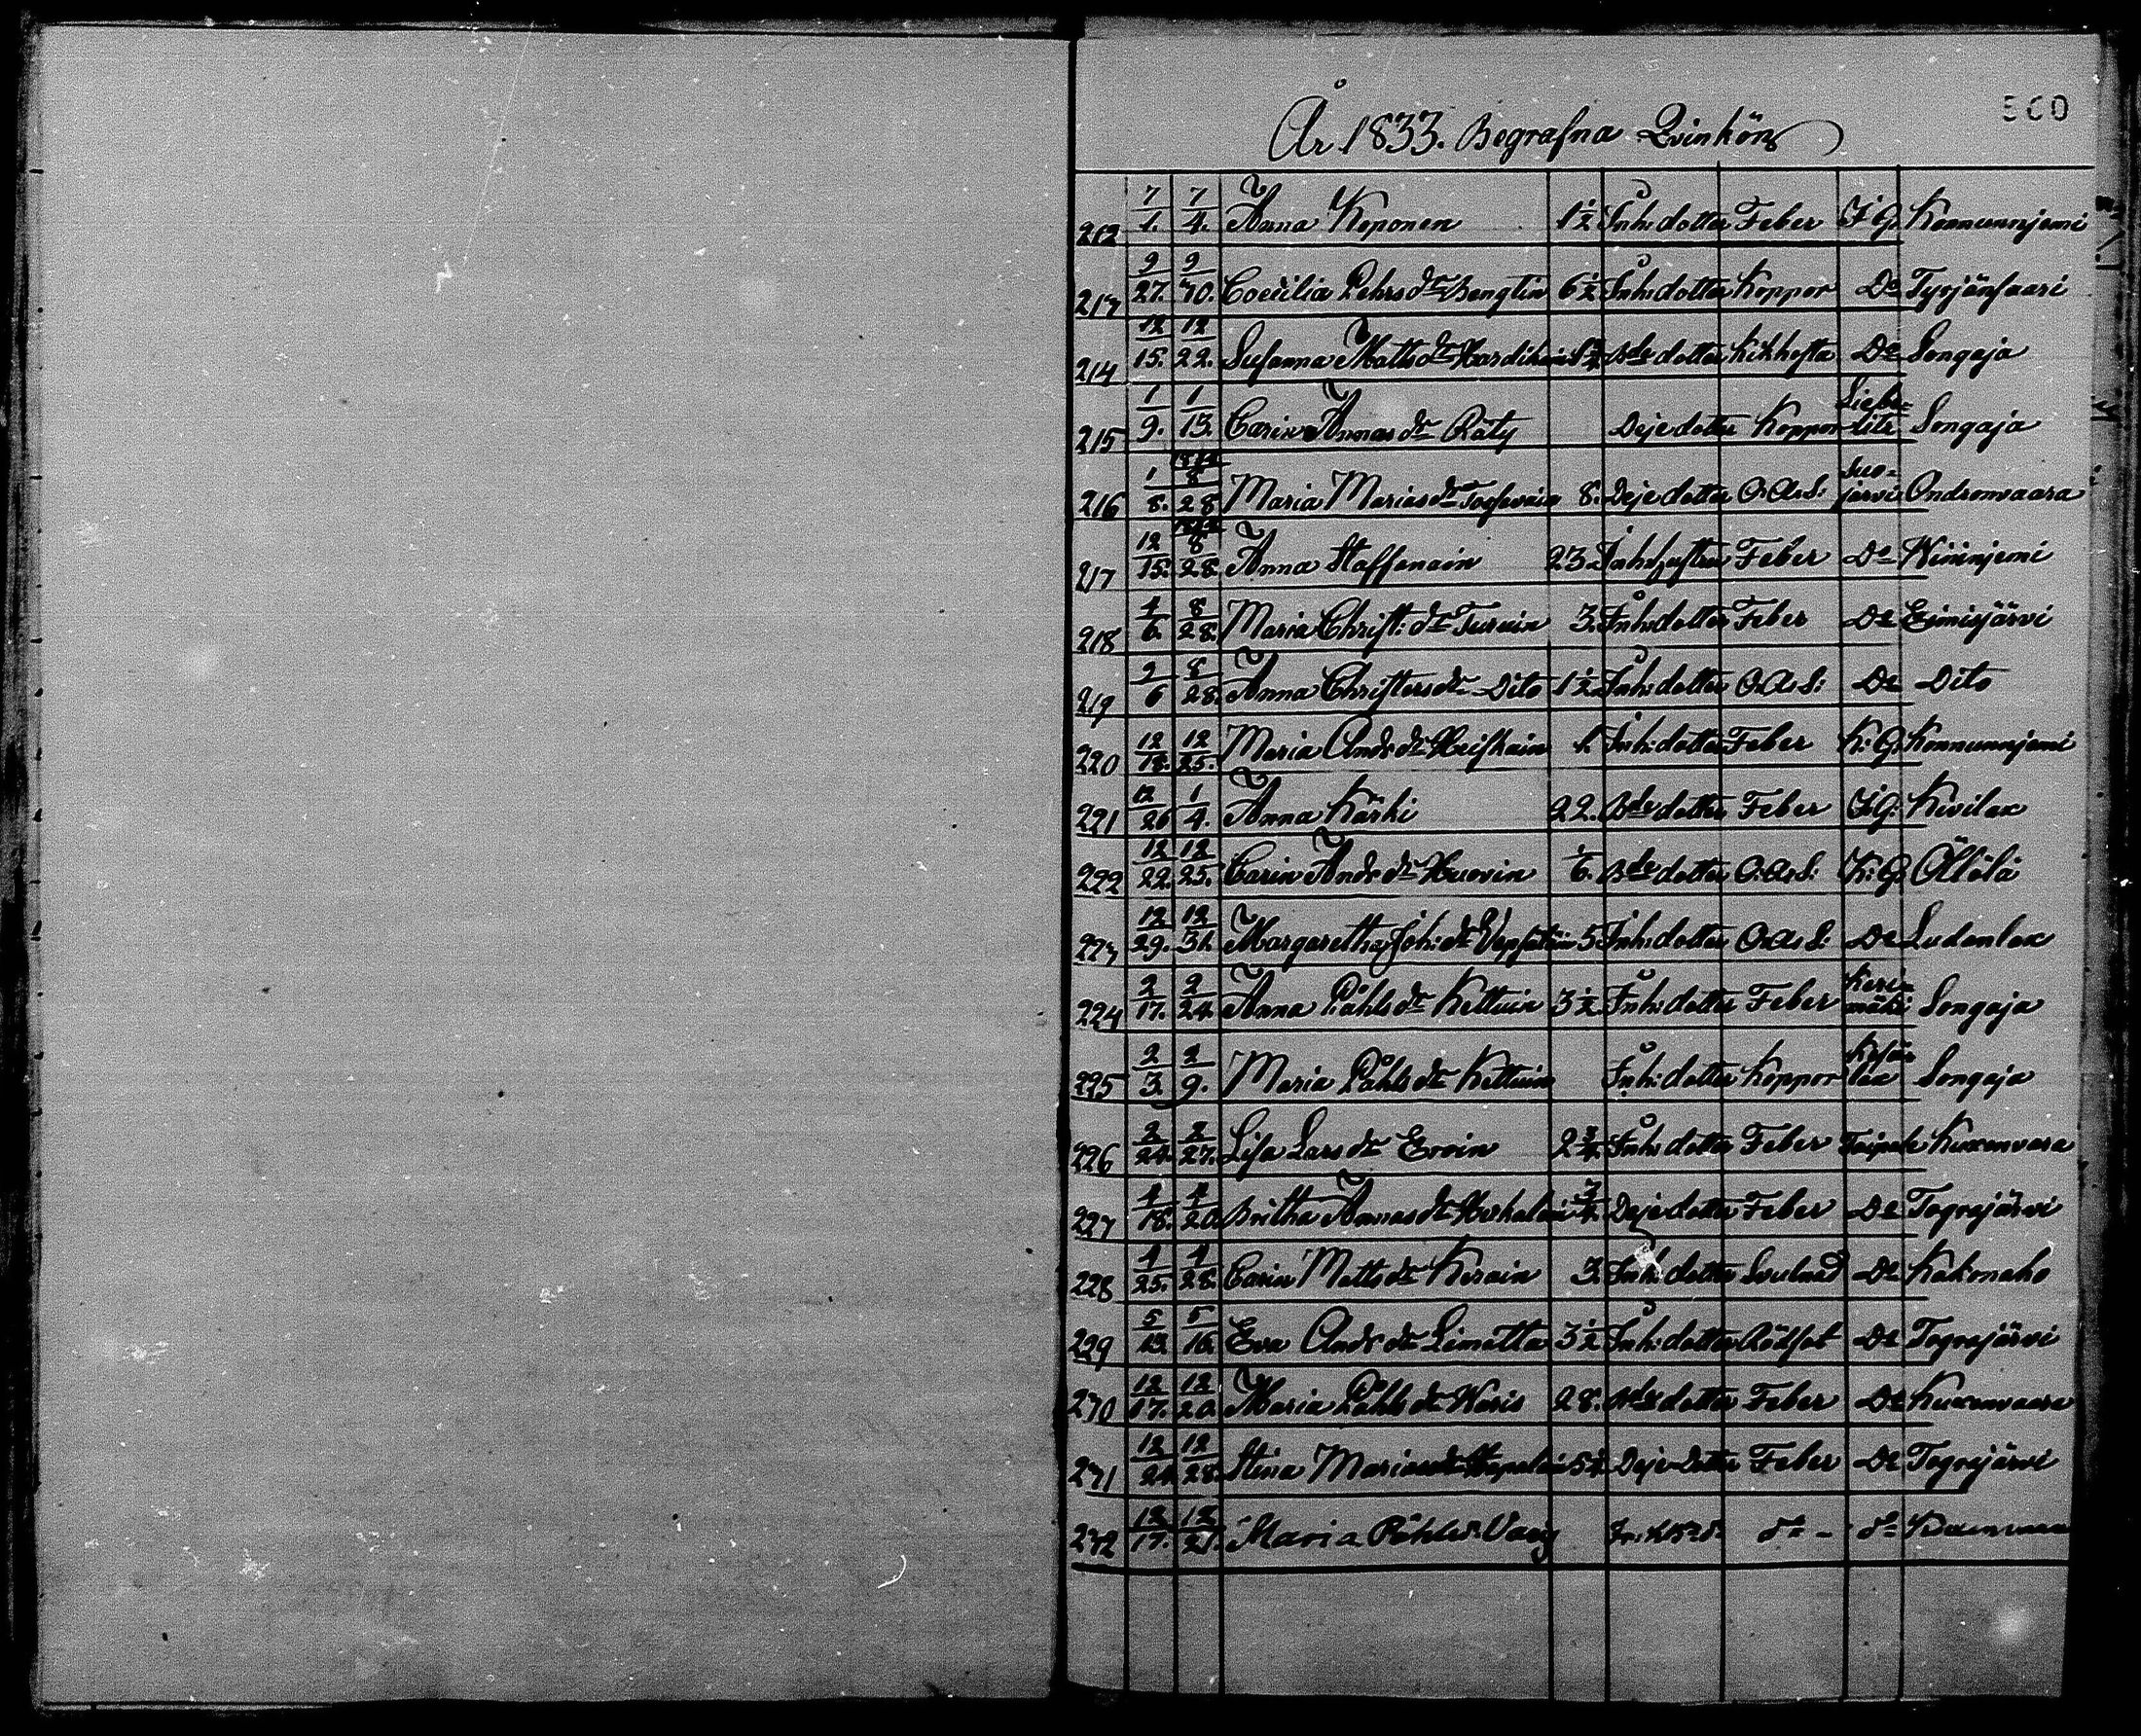 560
År 1833. Begrafna Qvinkön
212 7/1. 7/4. Anna Koponen 1½ Inh: dotter Feber I.G. Konnunnjemi
213 9/27. 9/30. Coecilia Pehrs dr Bengtin 6½ Inh: dotter Koppor Do Tyrjänsaari
214 12/15. 12/22. Susanna Matts dr Bde dotter Kikhosta Do Songaja
215 1/9. 1/13. Carin Annas dr Räty Deje dotter Koppor Liebelits Songaja
216 1/8. 8/28 Maria Marias dr 8. Deje dotter O.A.S. Suojärvi Ondronvaara
217 12/15. 8/28. Anna Staffenain 23. Inh: hustru Feber Do Wiiinjemi
218 4/6. 8/28. Maria Christ: dr Turuin 3. Inh: dotter Feber Do Eimisjärvi
219 2/6 8/28. Anna Christers dr Dito 1½ Inh: dotter O.A.S: Do Dito
220 12/18. 12/25. Maria Andr dr Heiskain 1. Inh: dotter Feber K:G: Konnunnjemi
221 12/26 1/4. Anna Kärki 22. Bde dotter Feber I.G: Kivilax
222 12/22. 12/25. Carin Andr dr Huovin 1/6. Bde dotter O.A.S: K:G: Ällölä
223 12/29. 12/31. Margaretha Joh: dr 5 Inh: dotter O.A.S: Do Ludenlax
224 2/17. 2/24. Anna Påhls dr Kettuin 3½ Inh: dotter Feber Kerimäki Songaja
225 2/3. 2/9. Maria Påhls dr Kettuin Inh: dotter Koppor Kesälax Songaja
226 2/24. 2/27. Lisa Lars dr Ervin 2¾ Inh: dotter Feber Taipale Kuxenvara
227 4/18. 4/20. Britha Annas dr ¾. Deje dotter Feber Do Togrejärvi
228 4/25. 4/28. Carin Matts dr Kerain 3. Inh: dotter Svulnad Do Kakonaho
229 5/13. 5/16. Eva Andr dr Limatta 3½ Inh: dotter Rödsot Do Togrejärvi
230 12/17. 12/20. Maria Påhls dr Waris 28. Bde dotter Feber Do Kuxenvaara
231 12/24. 12/28. Stina Marias dr Deje Dotter Feber Do Togrejärvi
232 12/17. 12/21. Maria Påhls d. do - do